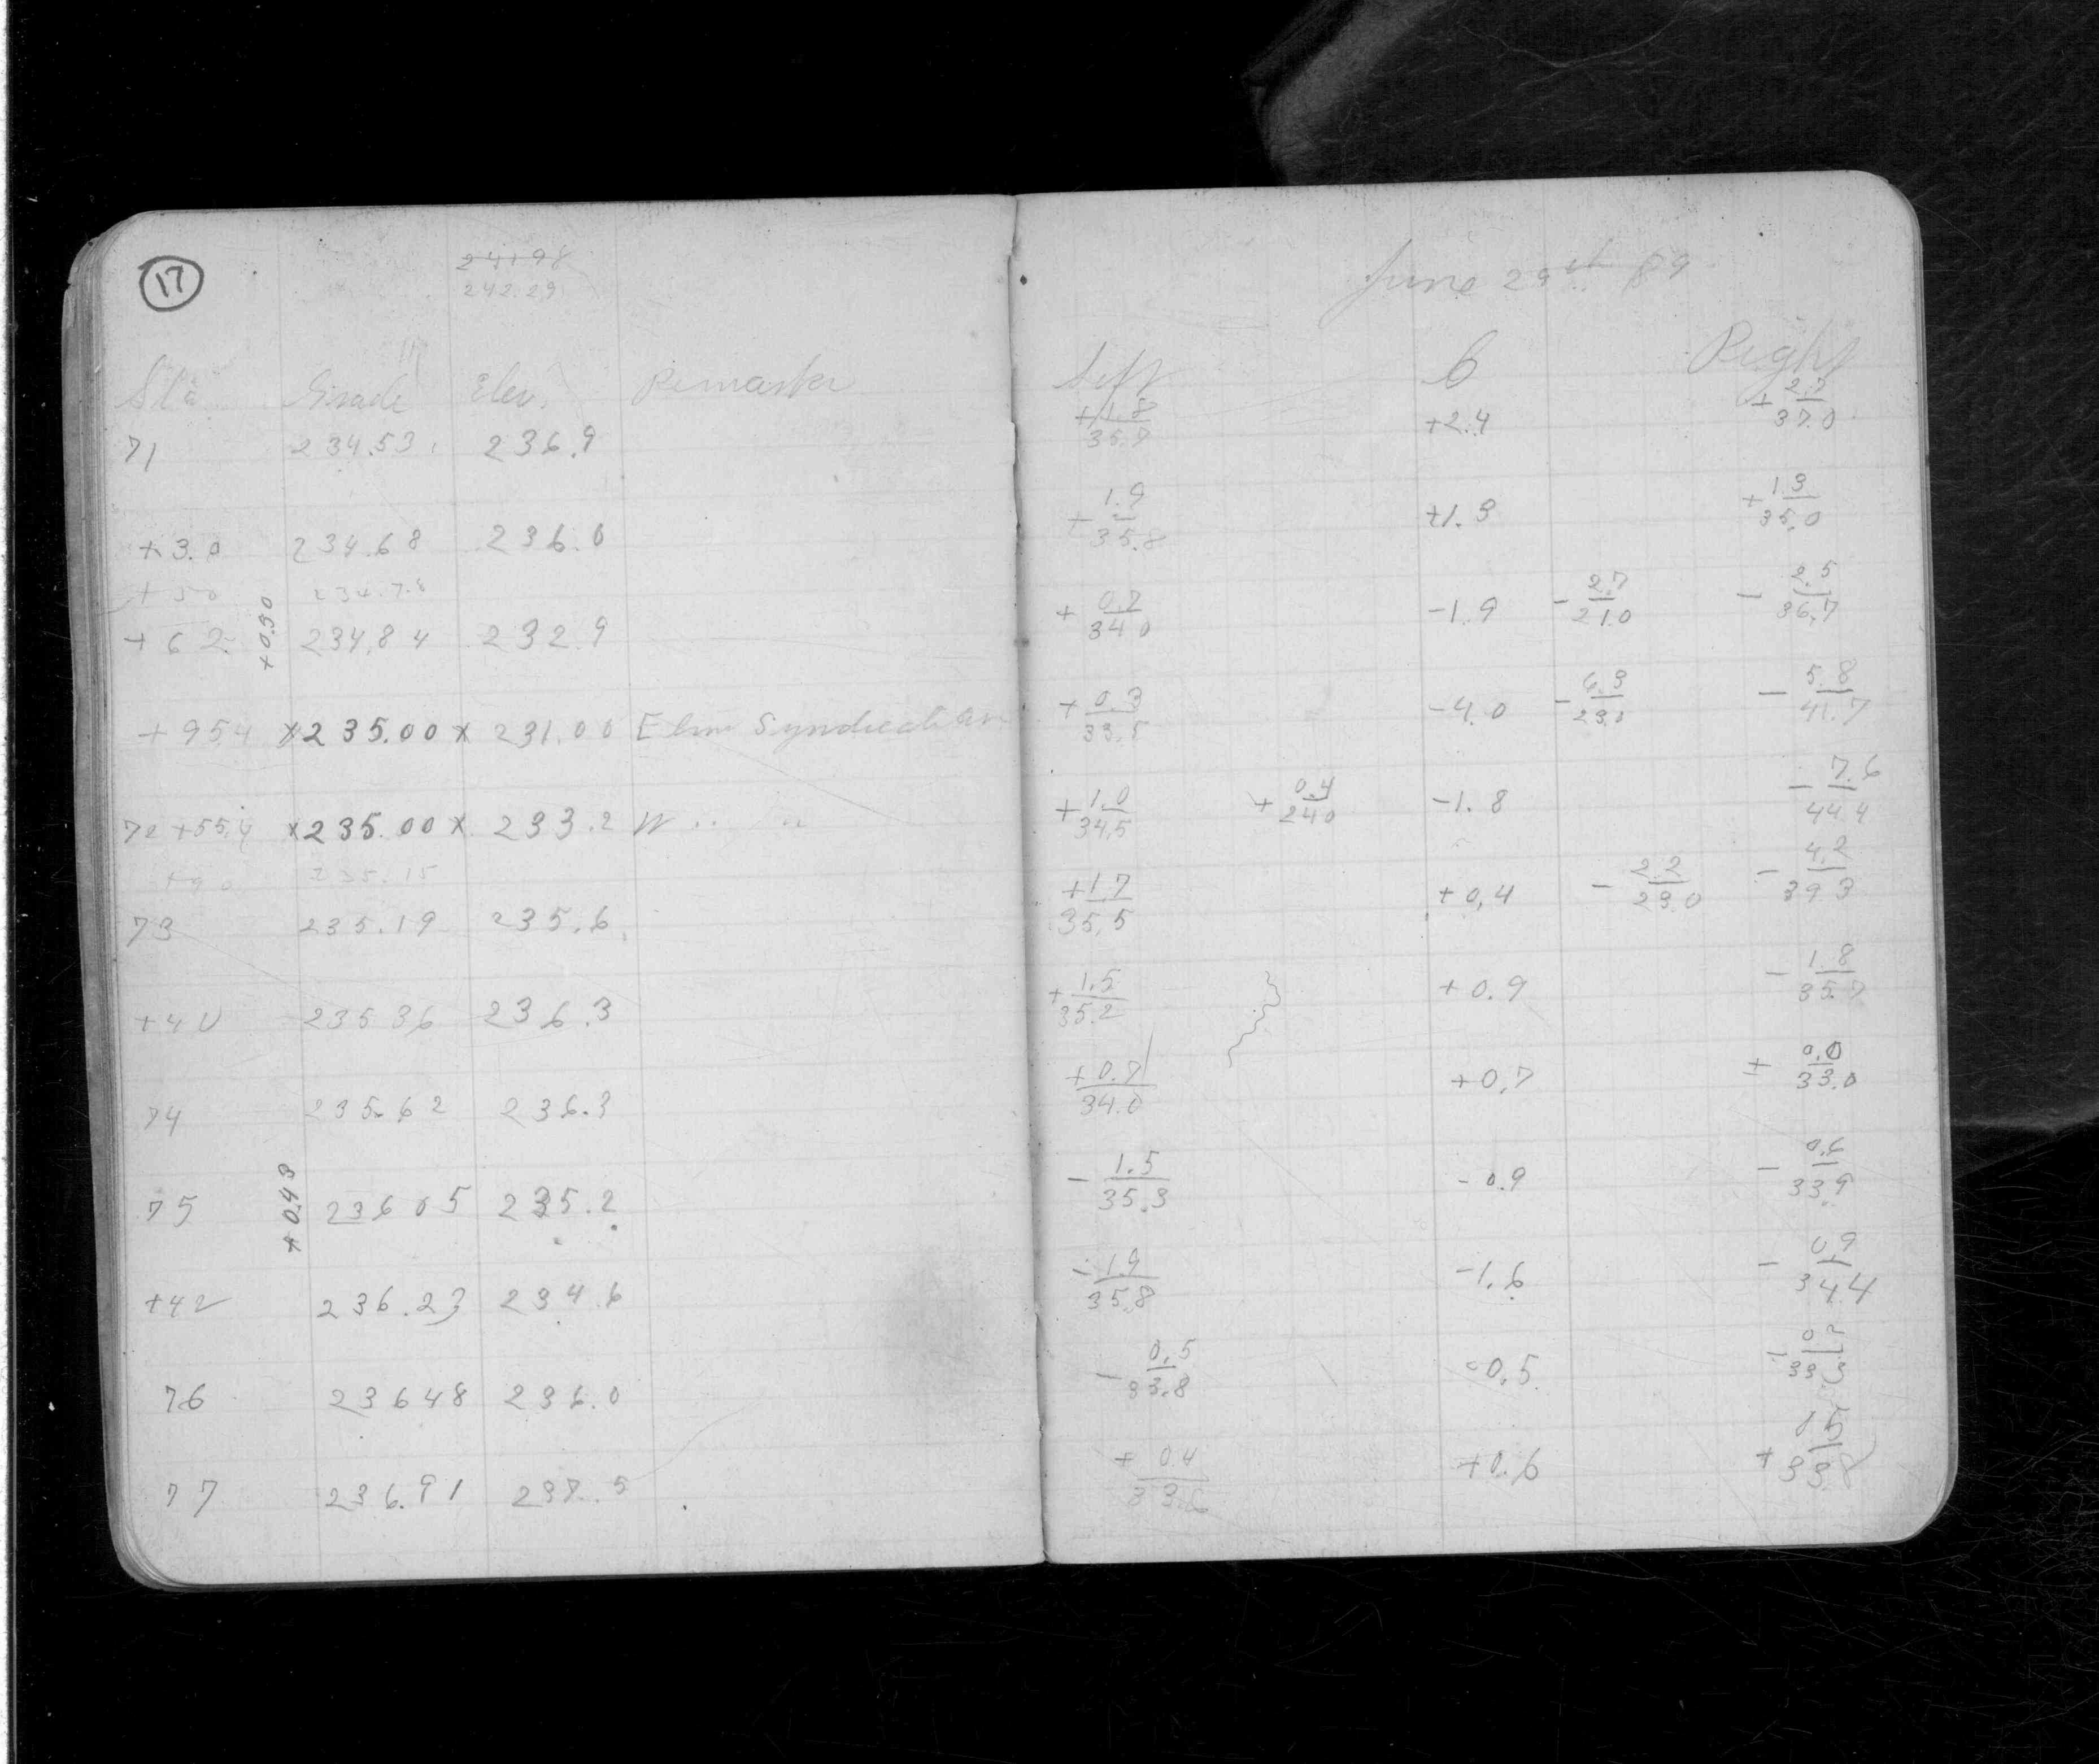 17
24198
242.29
June 29th 89
Sta Grade Elev. Remarks Left C Right
71 234.53 236.9 +1.8/35.7 +2.4 +2.7/37.0
+30 234.68 236.0 +1.9/35.8 +1.3 +1.3/35.0
+50 234.78
+0.30
+62 234.84 232.9 +0.7/34.0 -1.9 -2.7/21.0 -2.5/36.7
+954 x235.00x 231.00 E line +0.3/33.5 -4.0 -6.3/23.0 -5.8/41.7
72+55.4 x235.00x 233.2 W .. .. +1.0/34.5 +0.4/240 -1.8 -7.6/44.4
+90 235.15
73 235.19 235.6 +1.7/35.5 +0.4 -2.2/23.0 -4.2/39.3
+40 235 36 236.3 +1.5/35.2 +0.9 -1.8/35.7
74 235.62 236.3 +0.7/34.0 +0.7 ±0.0/33.0
+0.43
75 236 05 235.2 -1.5/35.3 -0.9 -0.6/33.9
+42 236.23 234.6 -1.9/35.8 -1.6 -0.9/34.4
76 23648 236.0 -0.5/33.8 -0.5 -0.2/33.3
77 236.91 237.5 +0.4/33.6 +0.6 +0.5/33.8